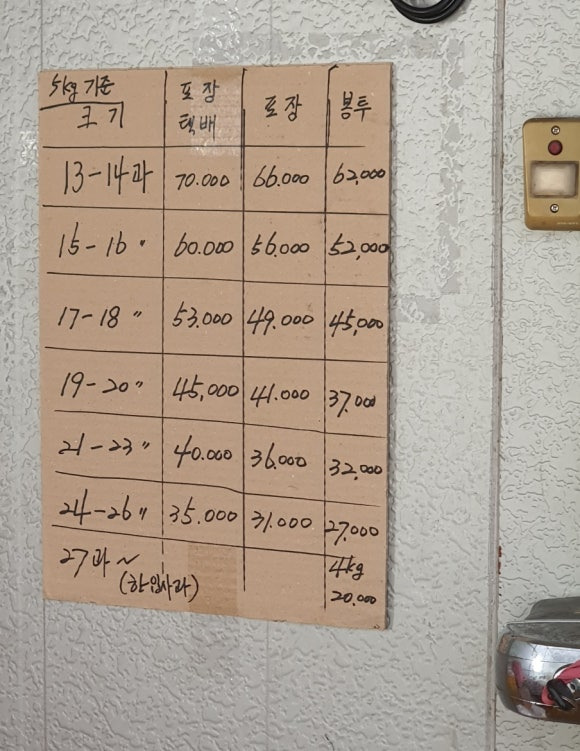 5kg 기준 크기 포장 택배 포장 봉투
13-14과 70.000 66.000 62,000
15-16 〃 60.000 56.000 52,000
17-18 〃 53.000 49.000 45,000
19-20 〃 45,000 41.000 37.000
21-23 〃 40.000 36.000 32,000
24-26 〃 35.000 31.000 27,000
27과~ 4kg
(한입사과) 20.000